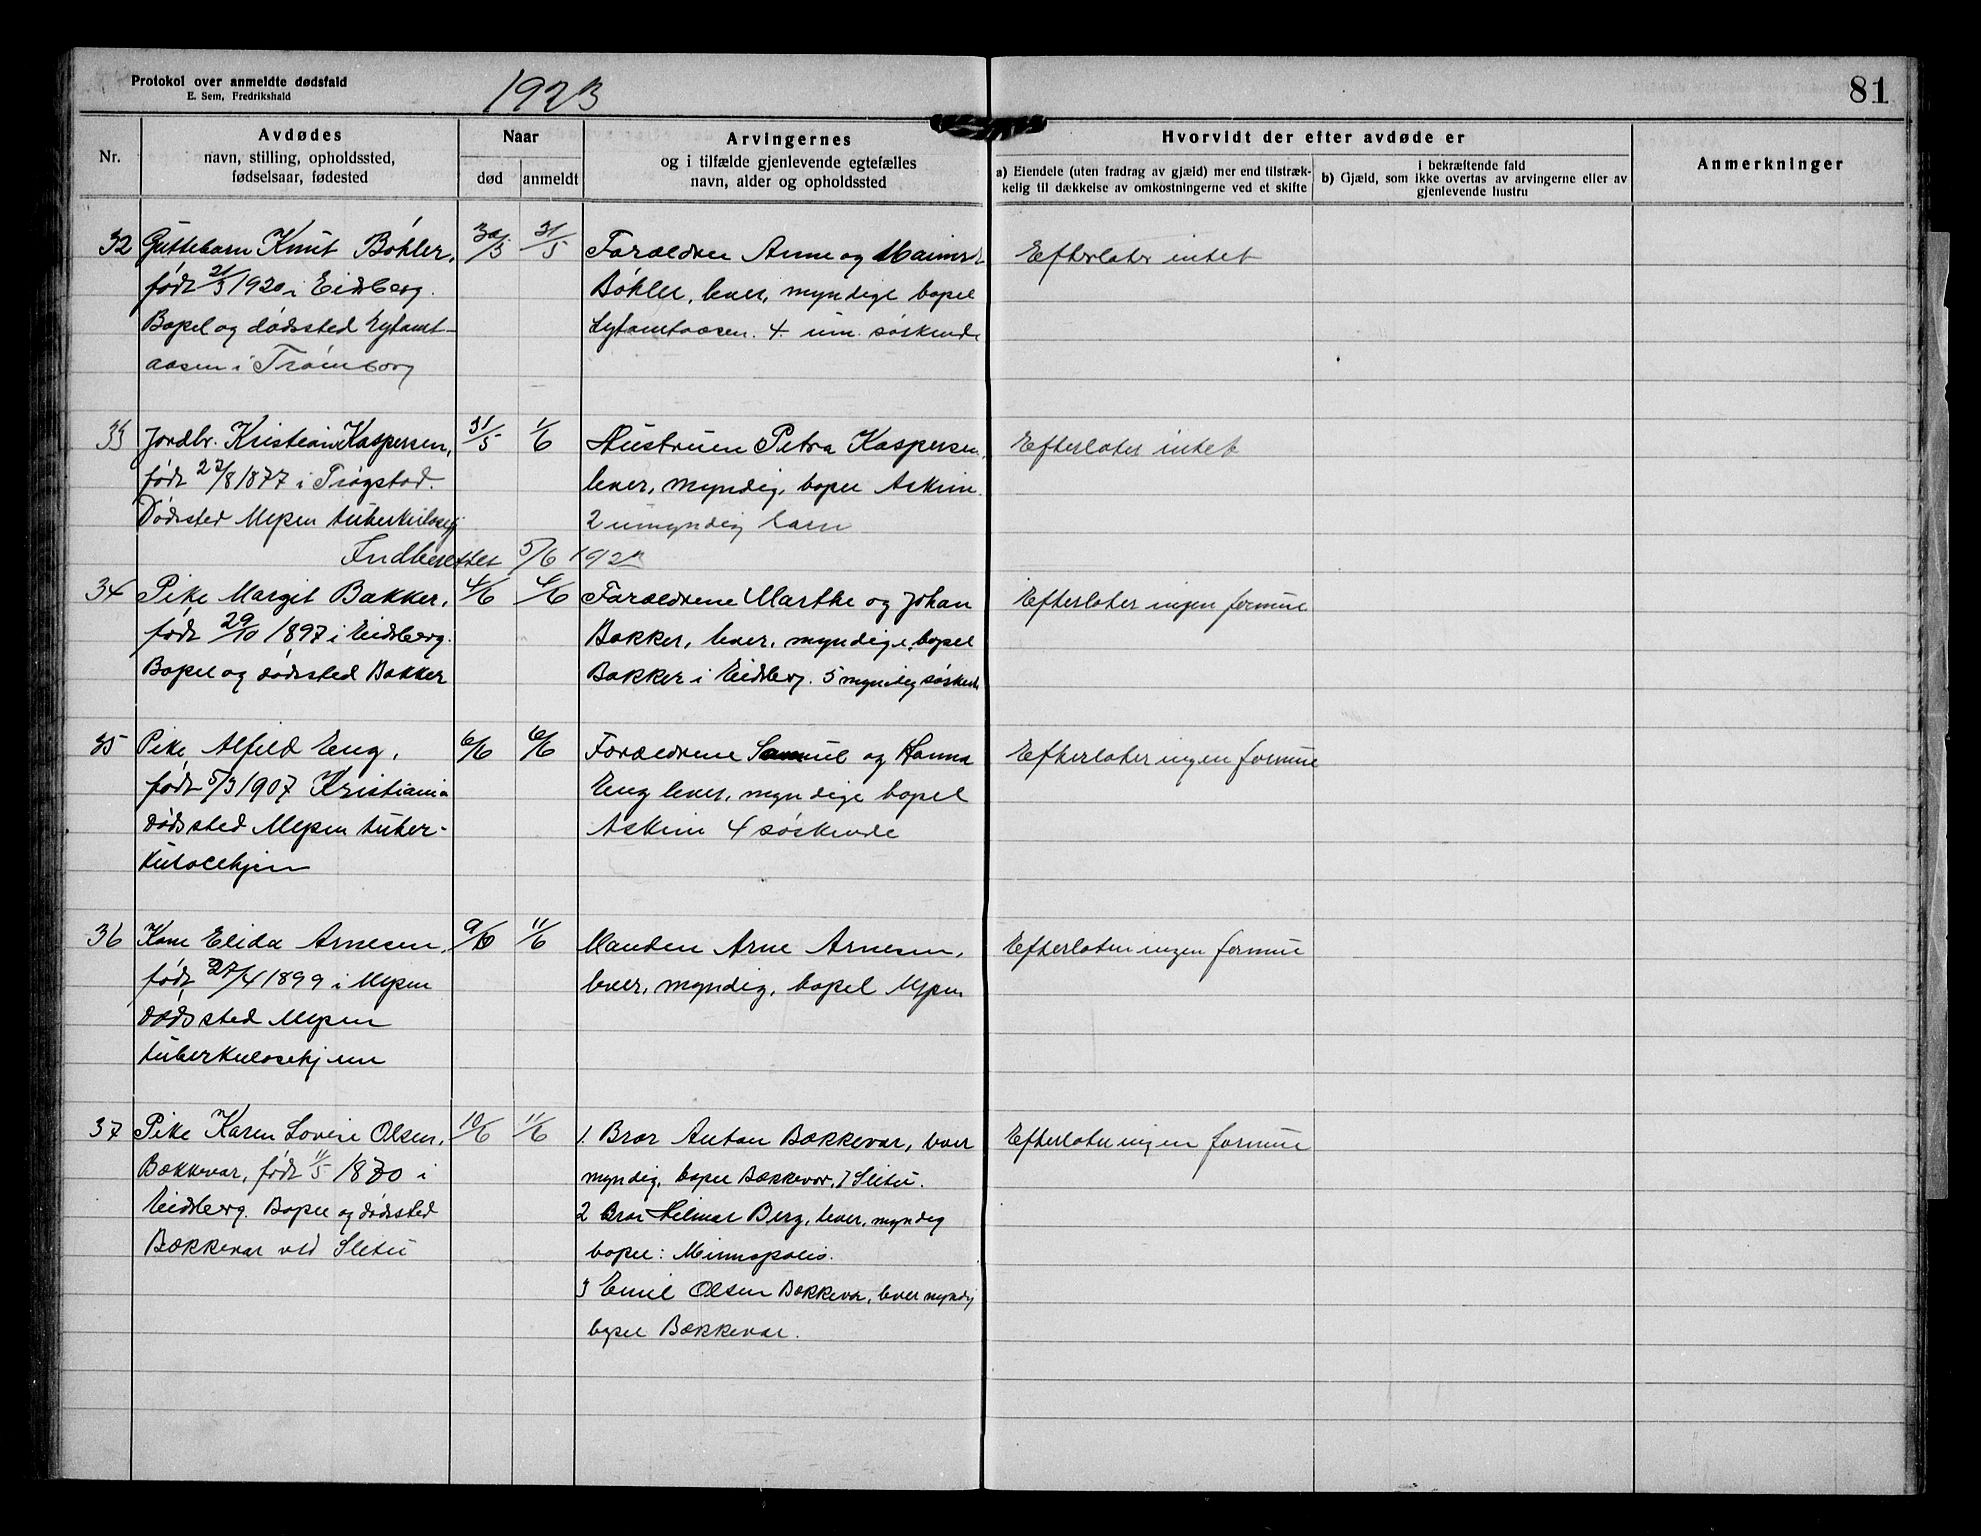 Protokol over anmeldte dødsfald
E. Sem, Fredrikshald
1923
81
Nr.
Avdødes
navn, stilling, opholdssted,
fødselsaar, fødested
Naar
død
anmeldt
Arvingernes
og i tilfælde gjenlevende egtefælles
navn, alder og opholdssted
Hvorvidt der efter avdøde er
a) Eiendele (uten fradrag av gjæld) mer end tilstræk-
kelig til dækkelse av omkostningerne ved et skifte
i bekræftende fald
b) Gjæld, som ikke overtas av arvingerne eller av
gjenlevende hustru
Anmerkninger
32
Guttebarn Knut Bøhler,
født 21/3 1920 i Eidsberg.
Bopel og dødssted
aasen i Trømborg
30/5
31/5
Forældre Anne og
Bøhler, lever, myndige bopel
4 um. søskende
Efterlater intet
33
Jordbr. Kristian Kaspersen,
født 27/8 1877 i Trøgstad.
Dødssted Mysen tuberkulosehj
31/5
1/6
Hustruen Petra Kaspersen,
lever, myndig, bopel Askim.
2 umyndig barn
Efterlater intet
Indberettet 5/6 1923
34
Pike Margit Bakker,
født 29/10 1897 i Eidsberg.
Bopel og dødssted Bakker
4/6
4/6
Forældrene Marthe og Johan
Bakker, lever, myndige, bopel
Bakker i Eidsberg. 5 myndig søskende
Efterlater ingen formue
35
Pike Alfild Eng,
født 5/3 1907 Kristiania
dødssted Mysen tuber-
kulosehjem
6/6
6/6
Forældrene Samuel og Hanna
Eng lever, myndige bopel
Askim 4 søskende
Efterlater ingen formue
36
Kone Elida Arnesen,
født 27/4 1899 i Mysen
dødssted Mysen
tuberkulosehjem
9/6
11/6
Manden Arne Arnesen,
lever, myndig, bopel Mysen
Efterlater ingen formue
37
Pike Karen Lovise Olsen,
Bækkevar, født 11/5 1870 i
Eidsberg. Bopel og dødssted
Bækkevar ved Slitu
10/6
11/6
1. Bror Anton Bækkevar, lever
myndig, bopel Bækkevar, i Slitu.
2 Bror Hilmar Berg, lever, myndig
bopel: Minnapolis.
3 Emil Olsen Bækkevar, lever myndig
bopel Bækkevar.
Efterlater ingen formue